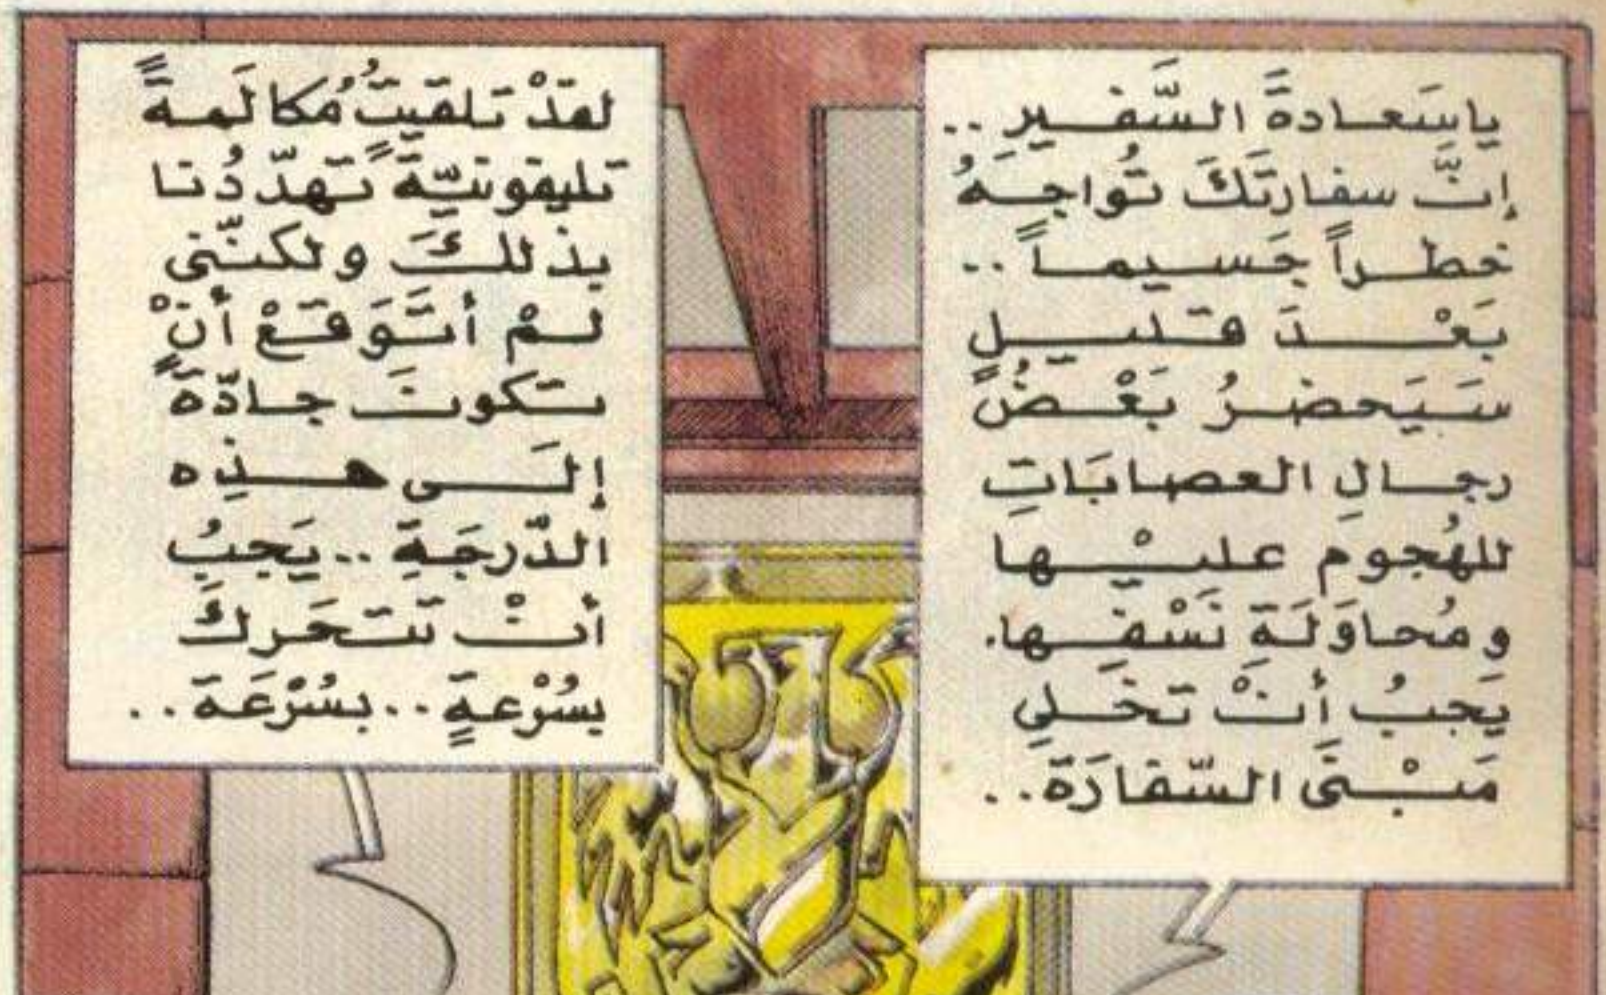 ياسَعادةَ السَّفيرِ ..
إنّ سفارتَكَ تُواجِهُ
خطراً جَسيماً ..
بَعْدَ قليلٍ
سَيَحضرُ بَعْضُ
رجالِ العصابَاتِ
للهُجومِ عليْها
ومُحاوَلَةِ نَسْفِها.
يَجبُ أنْ تخْلي
مَبْنَى السّفارَةِ..
لقدْ تلقيتُ مُكالَمةً
تليفونيّةً تهدّدُنا
بذلكَ ولكنّني
لمْ أتَوَقعْ أنْ
تكونَ جادّةً
إلَى هذِه
الدّرجَةِ .. يَجبُ
أنْ نتَحَركَ
بسُرْعةٍ .. بسُرْعَة ..